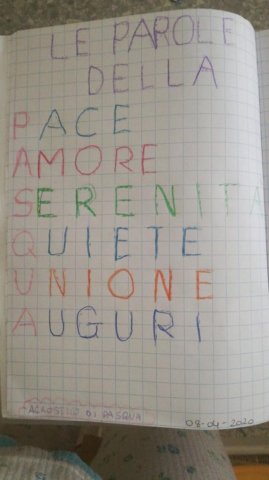 LE PAROLE
DELLA
PACE
AMORE
SERENITA
QUIETE
UNIONE
AUGURI
ACROSTICO DI PASQUA
08-04-2020